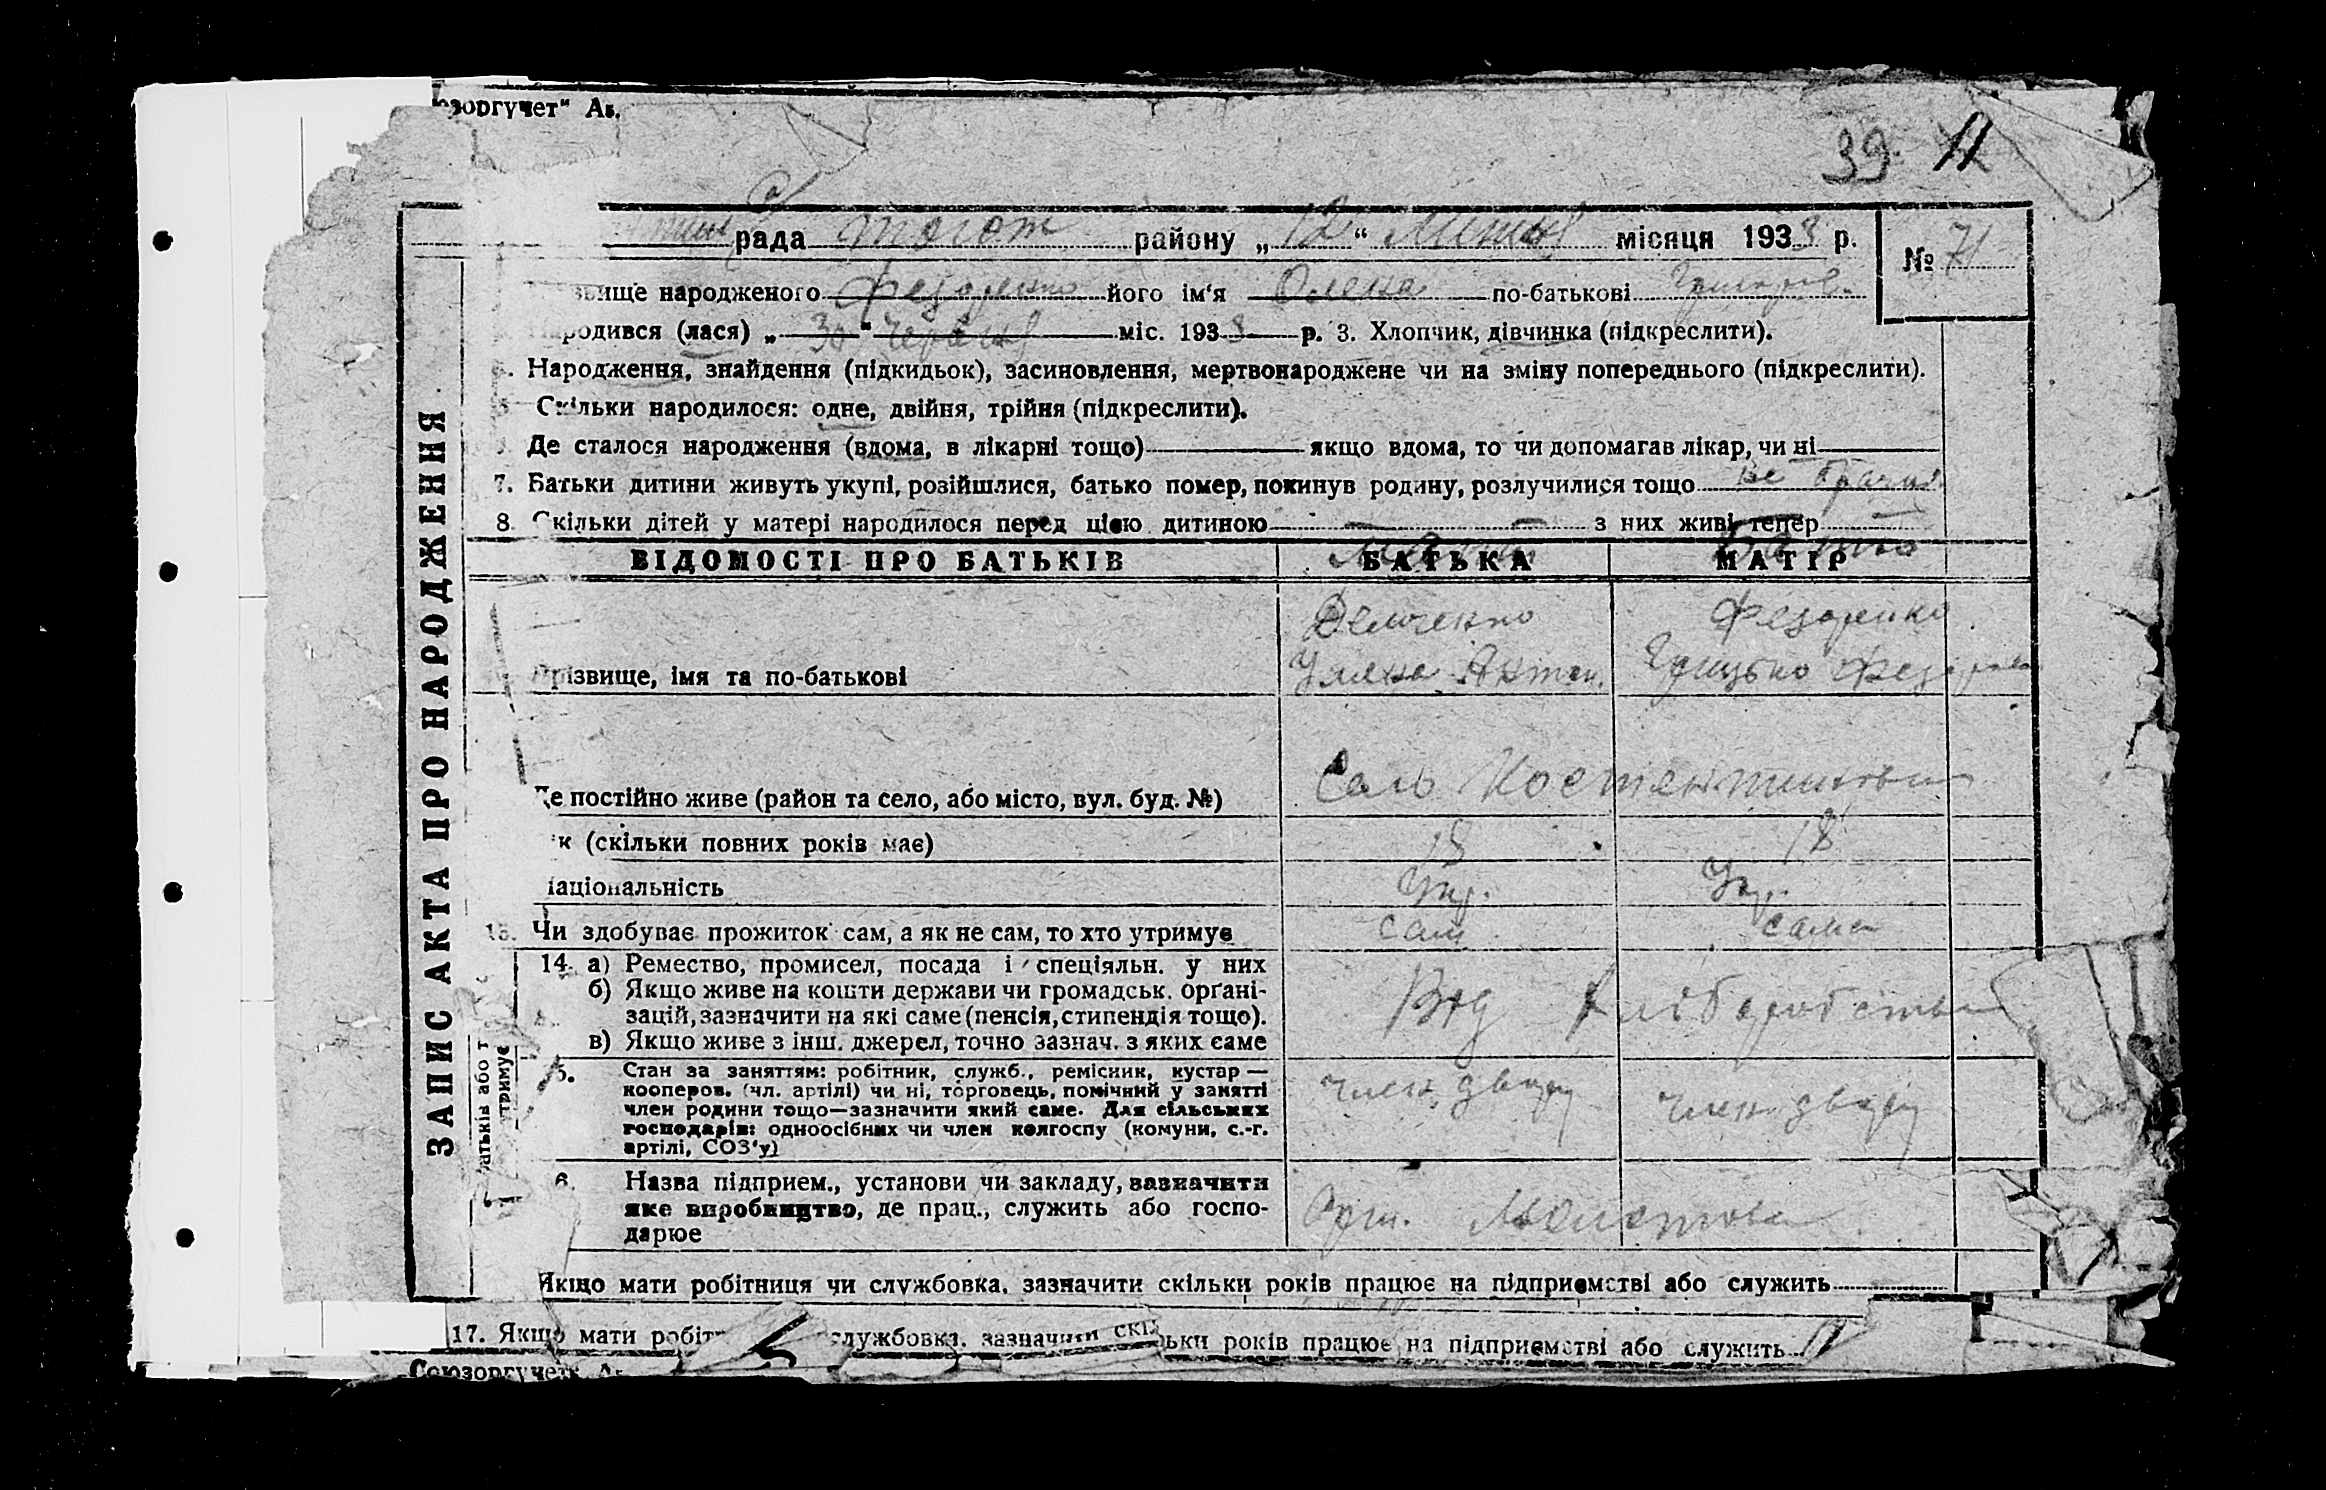 оюзоргучет“ Ав.
39
рада район у „ 12 “ Липня місяця 1933 р.
№ 71
звище народженого Федоренко його ім‘я Олена по-батькові Григоров.
народився (лася) „ 30 “ Червня міс. 1933 р. 3. Хлопчик, дівчинка (підкреслити).
Народження, знайдення (підкидьок), засиновлення, мертвонароджене чи на зміну попереднього (підкреслити).
Скільки народилося: одне, двійня, трійня (підкреслити).
Де сталося народження (вдома, в лікарні тощо) якщо вдома, то чи допомагав лікар, чи ні
7. Батьки дитини живуть укупі, розійшлися, батько помер, покинув родину, розлучилися тощо
8. Скільки дітей у матері народилося перед цією дитиною — — з них живі тепер —
ЗАПИС АКТА ПРО НАРОДЖЕННЯ
ВІДОМОСТІ ПРО БАТЬКІВ БАТЬКА МАТІР
Мати Батько
Федоренко
Прізвище, імя та по-батькові Уляна Антон. Грицько Федоров
Де постійно живе (район та село, або місто, вул. буд. №)
ік (скільки повних років має) 18 18
Національність Укр. Укр.
13. Чи здобуває прожиток сам, а як не сам, то хто утримує сам сама
14. а) Ремество, промисел, посада і спеціяльн. у них
б) Якщо живе на кошти держави чи громадськ. орґані-
зацій, зазначити на які саме (пенсія, стипендія тощо).
в) Якщо живе з інш. джерел, точно зазнач. з яких саме
Від хліборобства
батьків або т
утримує
5. Стан за заняттям: робітник, служб., ремісник, кустар —
кооперов. (чл. артілі) чи ні, торговець, помічний у занятті
член родини тощо—зазначити який саме. Для сільських
господарів: одноосібних чи член колгоспу (комуни, с.-г.
артілі, СОЗ‘у)
член двору член двору
6. Назва підприєм., установи чи закладу, зазначити
яке виробництво, де прац., служить або госпо-
дарює
Арт. Молотова
Якщо мати робітниця чи службовка, зазначити скільки років працює на підприємстві або служить
17. Якщо мати робіт службовка, зазначити скільки років працює на підприємстві або служить
Союзоргучет“ Ав.